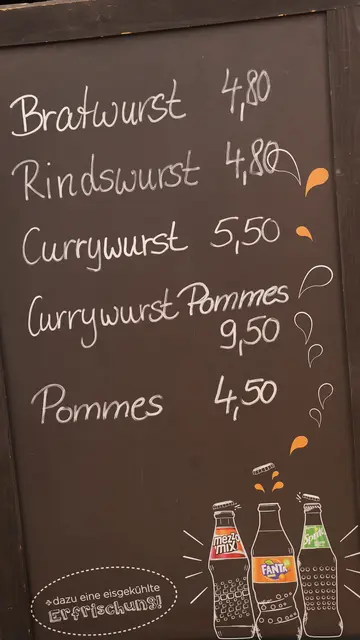 Bratwurst 4,80
Rindswurst 4,80
Currywurst 5,50
Currywurst Pommes
9,50
Pommes 4,50
mezzo
mix
FANTA
Sprite
+dazu eine eisgekühlte
Erfrischung!